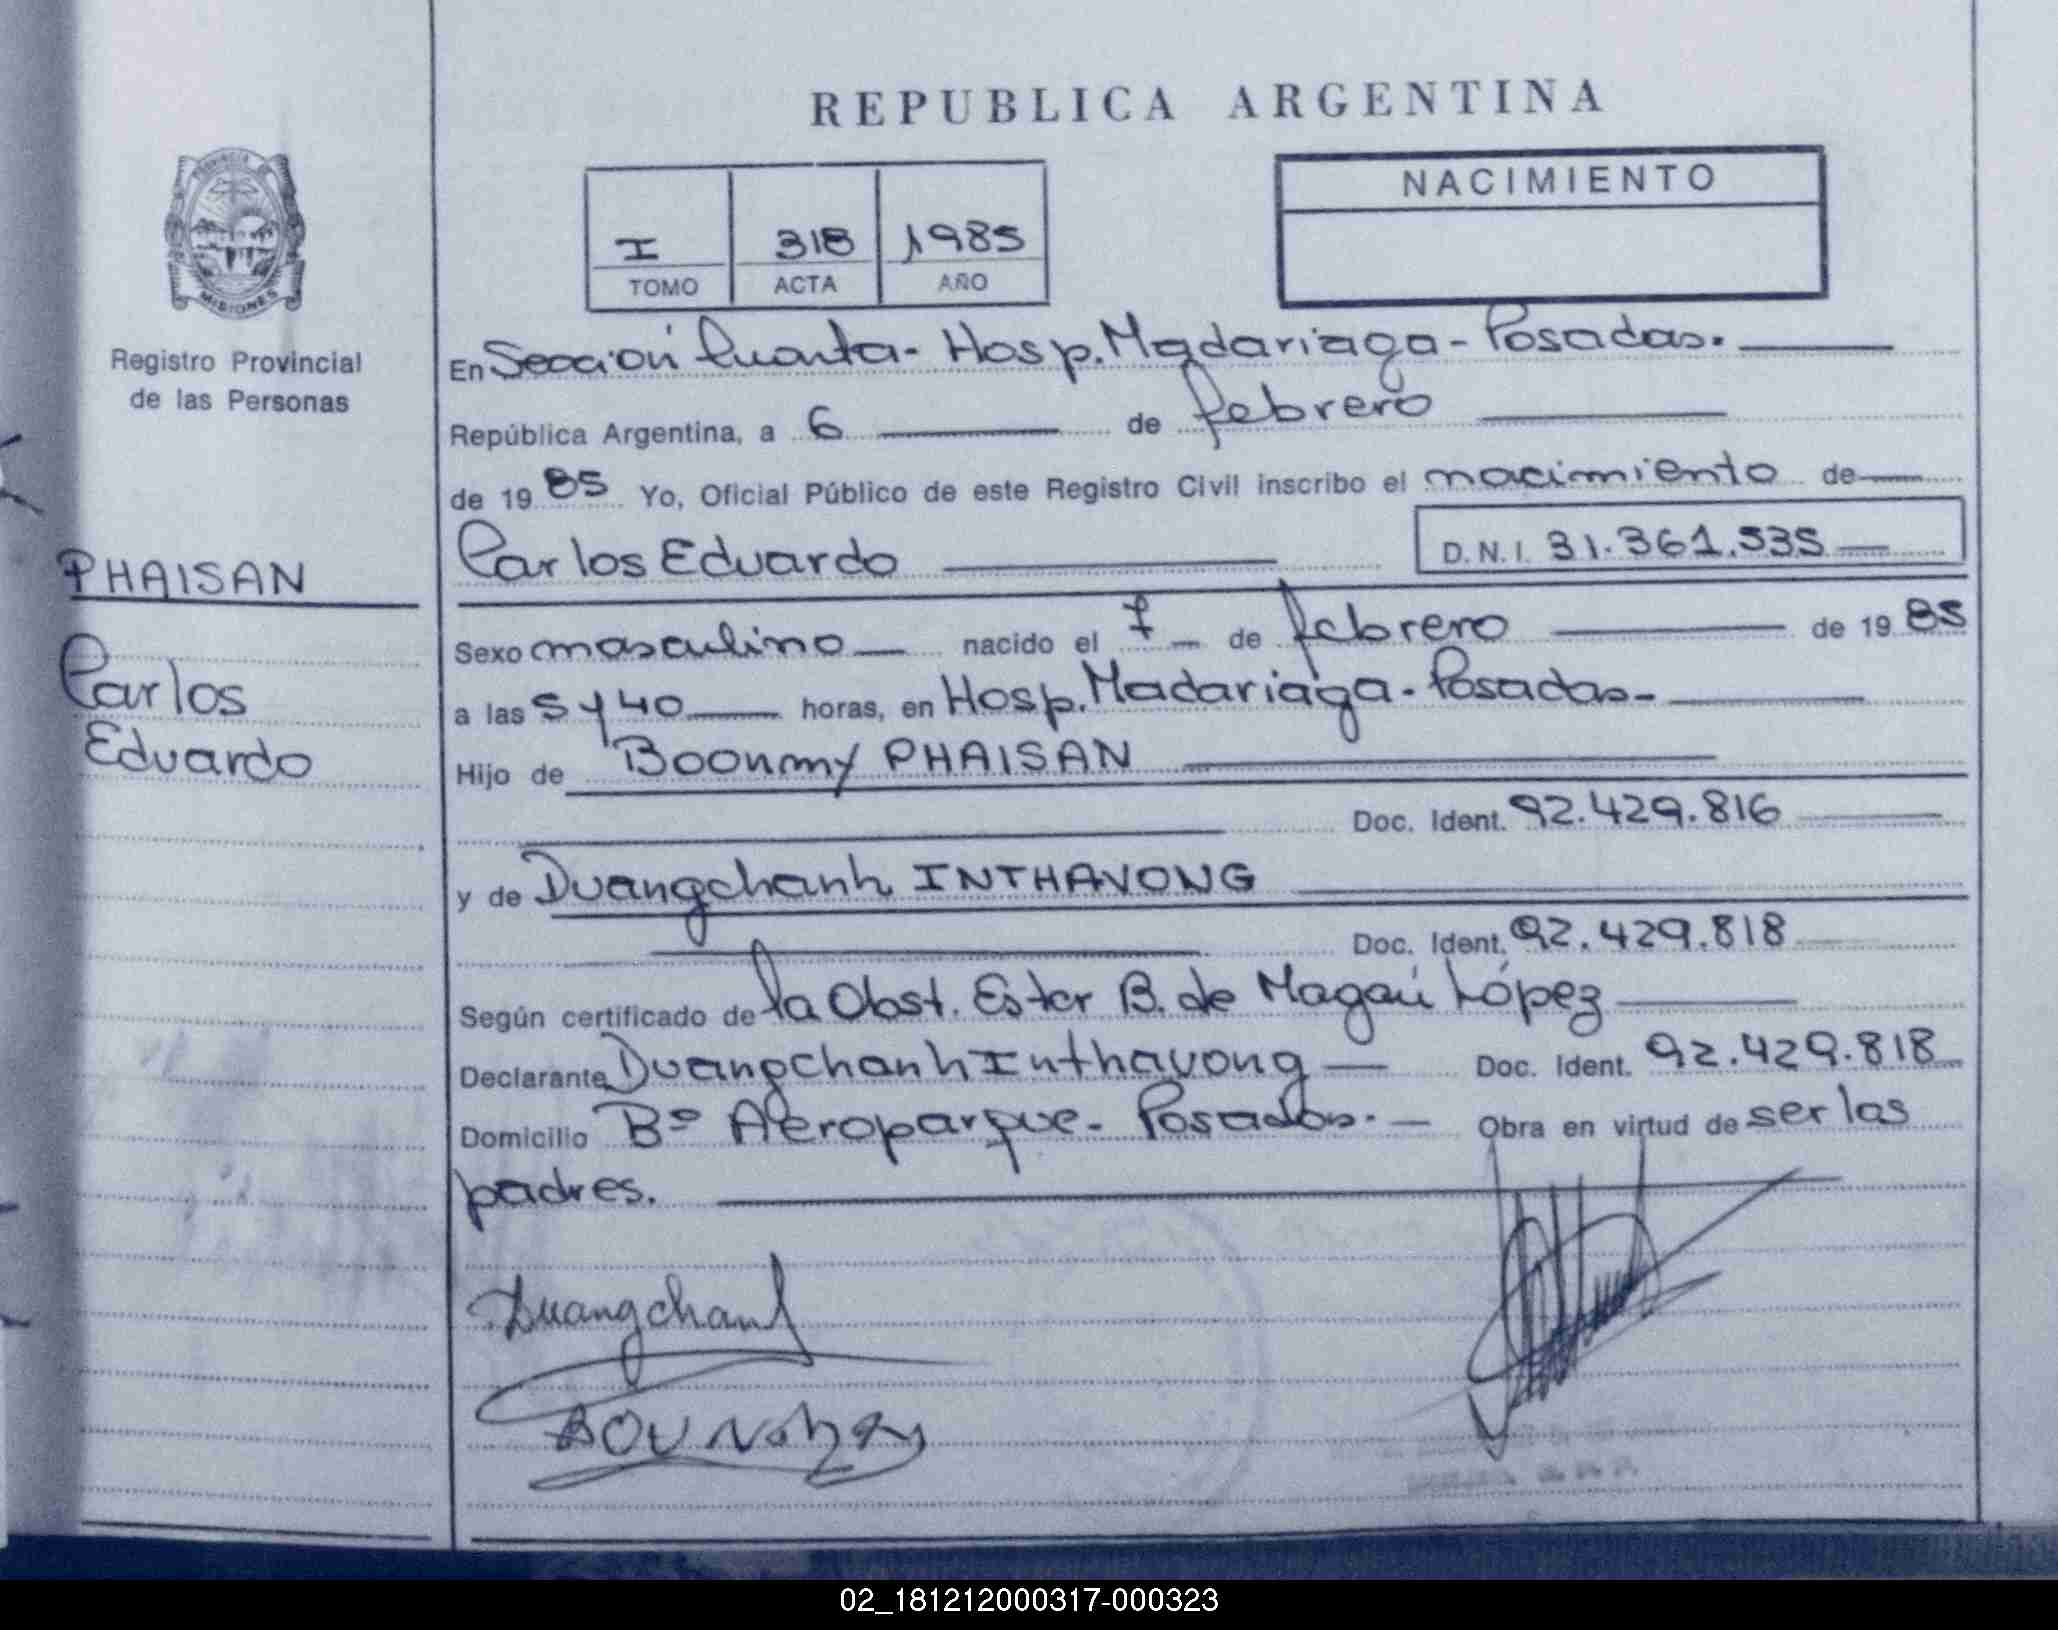 REPUBLICA ARGENTINA
PROVINCIA
MISIONES
Registro Provincial
de las Personas
I 318 1985
TOMO ACTA AÑO
NACIMIENTO
En Sección Cuarta - Hosp. Madariaga - Posadas.
República Argentina, a 6 de febrero
de 19 85 Yo, Oficial Público de este Registro Civil inscribo el nacimiento de
Carlos Eduardo D.N.I. 31.361.535
PHAISAN
Carlos
Eduardo
Sexo masculino nacido el 1 de febrero de 19 85
a las 5 y 40 horas, en Hosp. Madariaga - Posadas -
Hijo de Boonmy PHAISAN
Doc. Ident. 92.429.816
y de Duangchanh INTHAVONG
Doc. Ident. 92.429.818
Según certificado de la Obst. Ester B. de López
Declarante Duangchanh Inthavong Doc. Ident. 92.429.818
Domicilio Bº Aeroparque - Posadas. Obra en virtud de ser las
padres.
Duangchanh
02_181212000317-000323